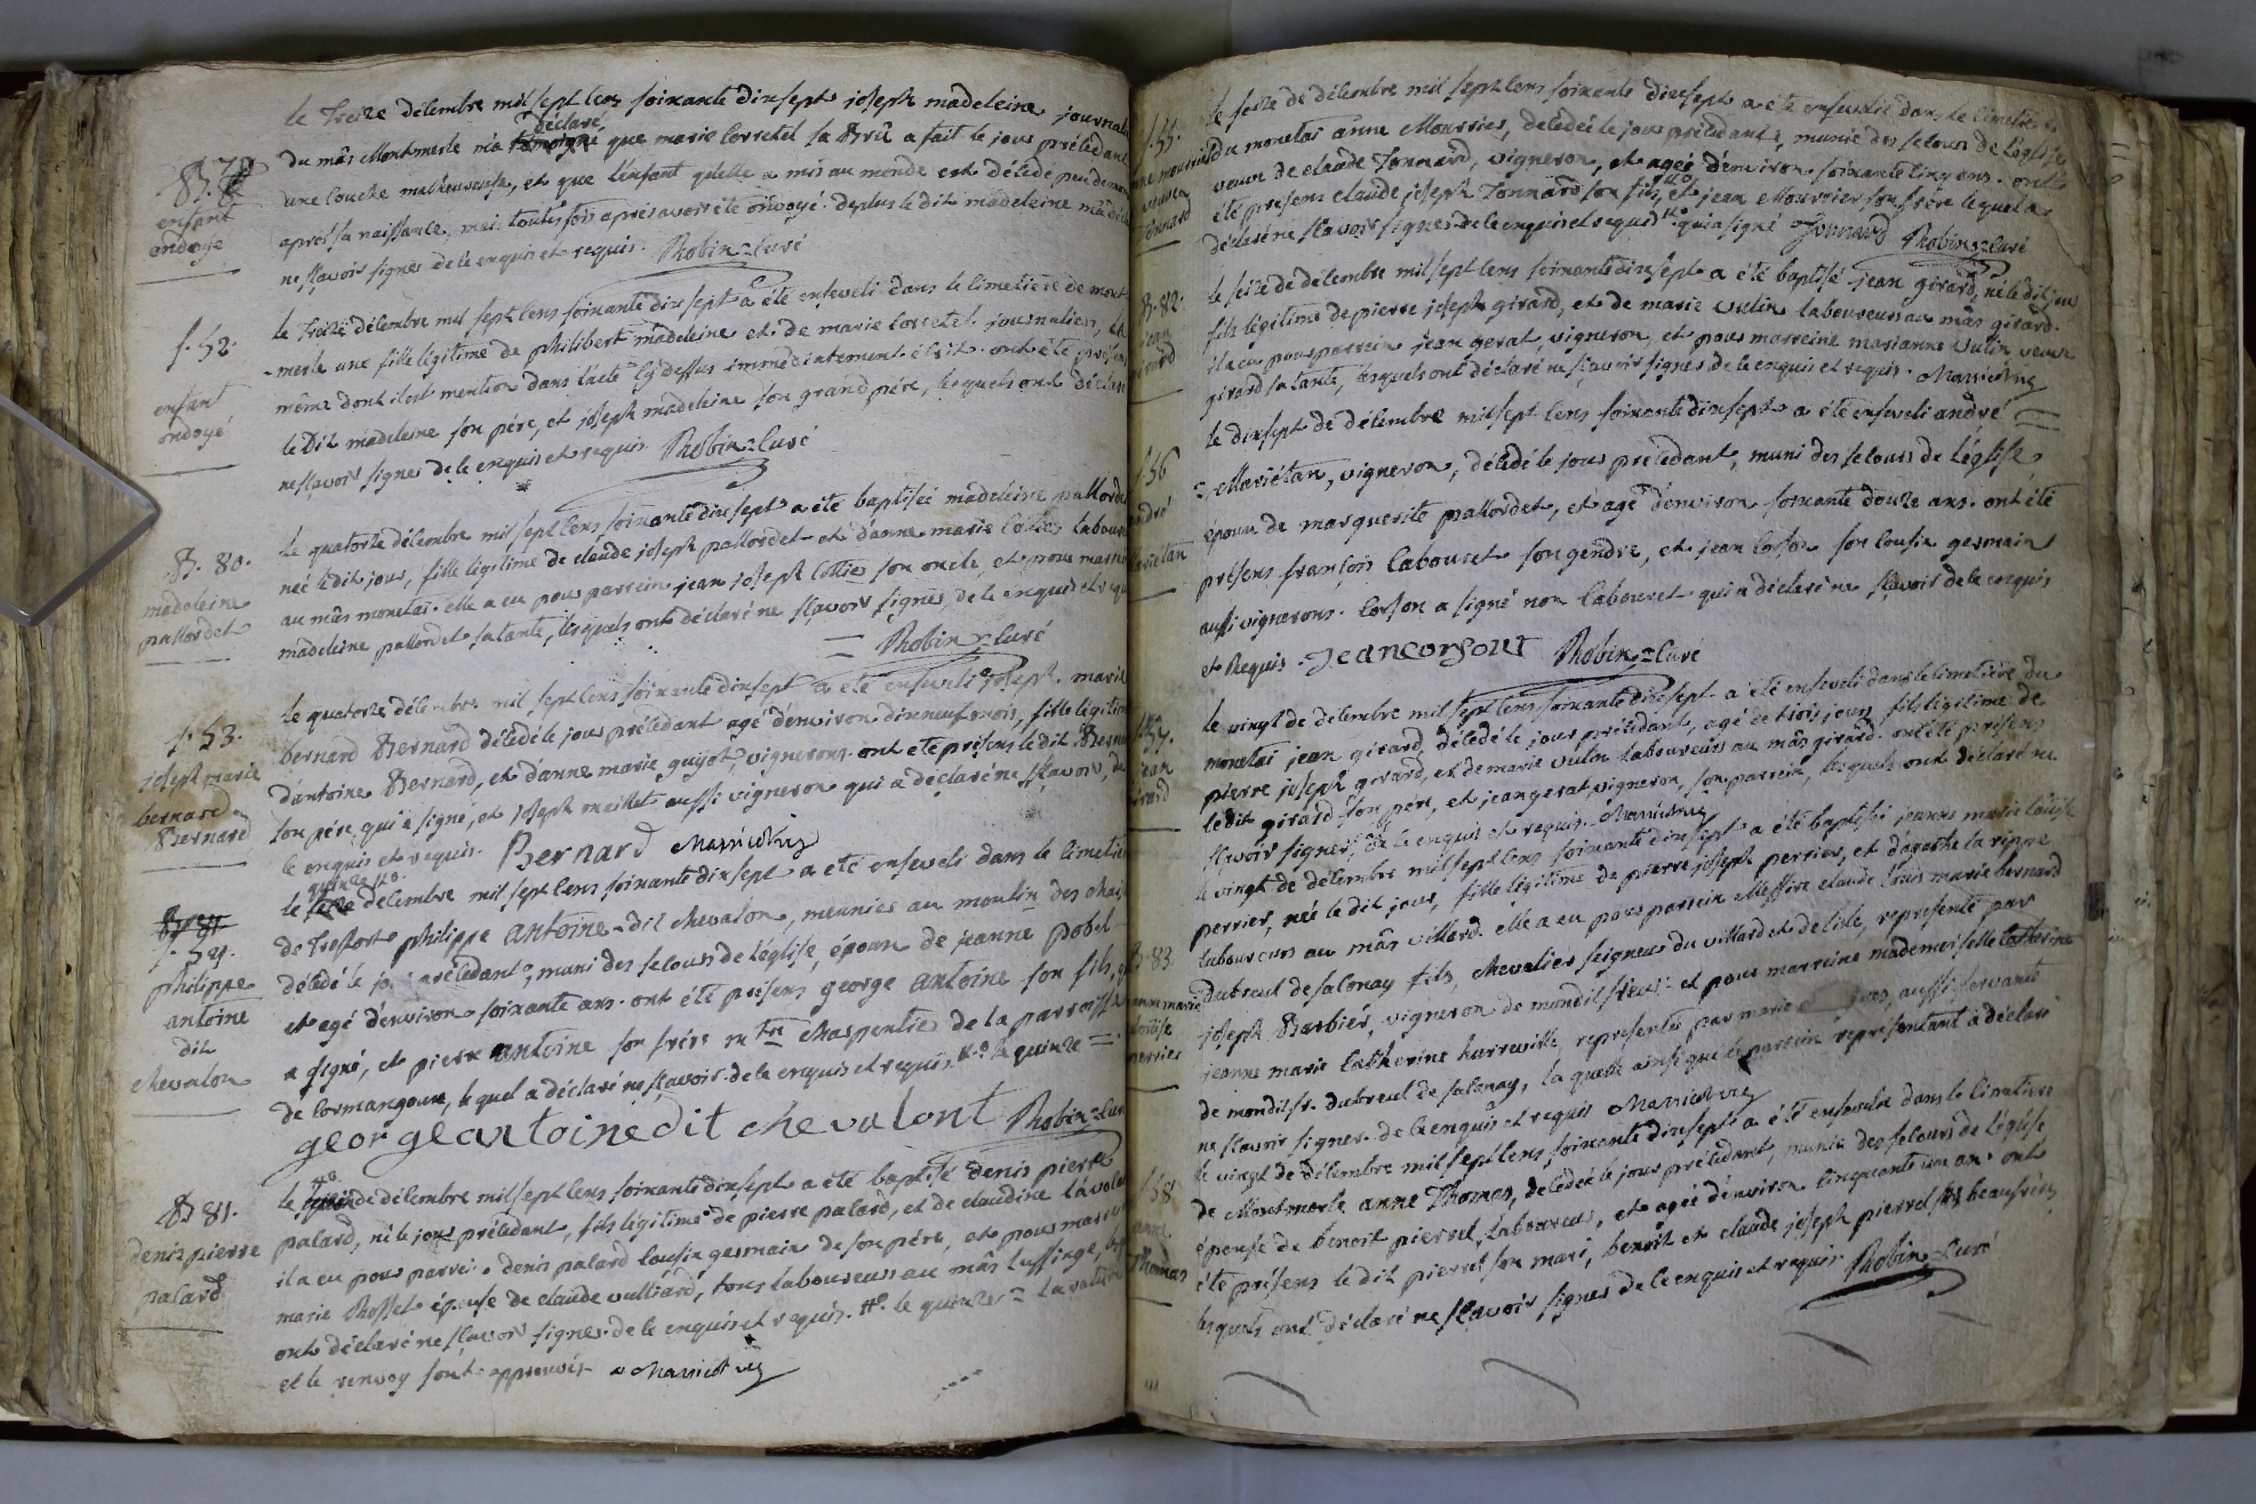 le Treize décembre mil sept cens soixante dixsept joseph madeleine
B. 79
enfant
ondoyé
déclaré
du mâs Montmerle m'a témoigné que marie corretel sa Brû a fait le jour précédant
une couche malheureuse, et que l'enfant qu'elle a mis au monde est décédé peu de
après sa naissance, mais toutefois après avoir été ondoyé. de plus le dit madeleine m'a
ne sçavoir signer de ce enquis et requis. Robin = Curé
S. 52.
enfant
ondoyé
le Treize décembre mil sept cens soixante dix sept a été enseveli dans le cimetière de mont
-merle une fille légitime de philibert madeleine et de marie corretel journalier, la
même dont il est mention dans l'acte cy dessus immédiatement écrit. ont été présens
le Dit madeleine son père, et joseph madeleine son grand père, lesquels ont déclaré
ne sçavoir signer de ce enquis et requis Robin = Curé
B. 80.
madeleine
pallordet
le quatorze décembre mil sept cens soixante dix sept a été baptisée madeleine pallordet
née le dit jour, fille légitime de claude joseph pallordet et d'anne marie cottier
au mâs monetai. elle a eu pour parrein jean joseph cottier son oncle, et pour
madeleine pallordet sa tante, lesquels ont déclaré ne sçavoir signer, de ce enquis et
= Robin = Curé
S. 53.
joseph marie
bernard
Bernard
le quatorze décembre mil sept cens soixante dixsept a été enseveli joseph marie
bernard Bernard décédé le jour précédant agé d'environ dixneuf mois, fils légitime
d'antoine Bernard, et d'anne marie guyot, vignerons. ont été présens le dit
son père qui a signé, et joseph maillet aussi vigneron qui a déclaré ne sçavoir, de
ce enquis et requis. Bernard
B 81
S. 54.
philippe
antoine
dit
chevalon
quinze
le décembre mil sept cens soixante dixsept a été enseveli dans le cimetière
de Treffort philippe antoine dit chevalon, meunier au moulin des
décédé le jour précédant, muni des secours de l'église, époux de jeanne pobel
et agé d'environ soixante ans. ont été présens george antoine son fils, qui
a signé, et pierre antoine son frère mtre charpentier de la parroisse
de cormangoux, lequel a déclaré ne sçavoir de ce enquis et requis. le quinze =
george antoine dit chevalont Robin = Curé
B 81.
denis pierre
palard
le décembre mil sept cens soixante dixsept a été baptisé denis pierre
palard, né le jour précédant, fils légitime de pierre palard, et de claudine
il a eu pour parrein denis palard cousin germain de son père, et pour
marie Rosset épouse de claude vulliard, tous laboureurs au mâs lussinge,
ont déclaré ne sçavoir signer de ce enquis et requis. le quinze = la rature
et le renvoy sont approuvés
S. 55.
anne mourrier
veuve
Tonnard
le seize de décembre mil sept cens soixante dixsept a été ensevelie dans le cimetière
du monetai anne Mourrier, décédée le jour précédant, munie des secours de l'église
veuve de claude Tonnard, vigneron, et agée d'environ soixante cinq ans. ont
été présens claude joseph Tonnard son fils, et jean Mourrier son frère lequel a
déclaré ne sçavoir signer de ce enquis et requis. qui a signé Tonnard Robin = Curé
B. 82.
jean
girard
le seize de décembre mil sept cens soixante dixsept a été baptisé jean girard, né le dit jour
fils légitime de pierre joseph girard, et de marie vulin laboureurs au mâs girard.
il a eu pour parrein jean gerat, vigneron, et pour marreine marianne vulin veuve
girard sa tante, lesquels ont déclaré ne sçavoir signer de ce enquis et requis.
S. 56
andré
Mariétan
le dixsept de décembre mil sept cens soixante dixsept a été enseveli andré =
= Mariétan, vigneron, décédé le jour précédant, muni des secours de l'église
époux de marguerite pallordet, et agé d'environ soixante douze ans. ont été
présens françois labouret son gendre, et jean corson son cousin germain
aussi vignerons. corson a signé non labouret qui a déclaré ne sçavoir de ce enquis
et Requis. Jean corsont Robin = Curé
S. 57.
jean
girard
le vingt de décembre mil sept cens soixante dixsept a été enseveli dans le cimetière du
monetai jean girard, décédé le jour précédant, agé de trois jours fils légitime de
pierre joseph girard, et de marie vulin laboureurs au mâs girard. ont été présens
le dit girard son père, et jean gerat, vigneron, son parrein, lesquels ont déclaré ne
sçavoir signer, de ce enquis et requis.
B. 83
jeanne marie
louise
perrier
le vingt de décembre mil sept cens soixante dixsept a été baptisée jeanne marie louise
perrier, née le dit jour, fille légitime de pierre joseph perrier, et d'agathe la rippe
laboureurs au mâs villard. elle a eu pour parrein messire claude louis marie bernard
Dubreul de salonay fils, chevalier seigneur du villard et de l'isle, représenté par
joseph Barbier, vigneron de mondit sieur. et pour marreine mademoiselle catherine
jeanne marie catherine harreville représentée par marie aussi servante
de mondit sr. dubreul de salonay, laquelle ainsi que le parrein représentant a déclaré
ne sçavoir signer de ce enquis et requis
S. 58
anne
Thomas
le vingt de décembre mil sept cens soixante dixsept a été ensevelie dans le cimetière
de Montmerle anne Thomas, décédée le jour précédant, munie des secours de l'église
épouse de benoit pierrel, laboureur, et agée d'environ cinquante un an. ont
été présens le dit pierrel son mari, benoit et claude joseph pierrel ses beaufrères
lesquels ont déclaré ne sçavoir signer de ce enquis et requis Robin = Curé